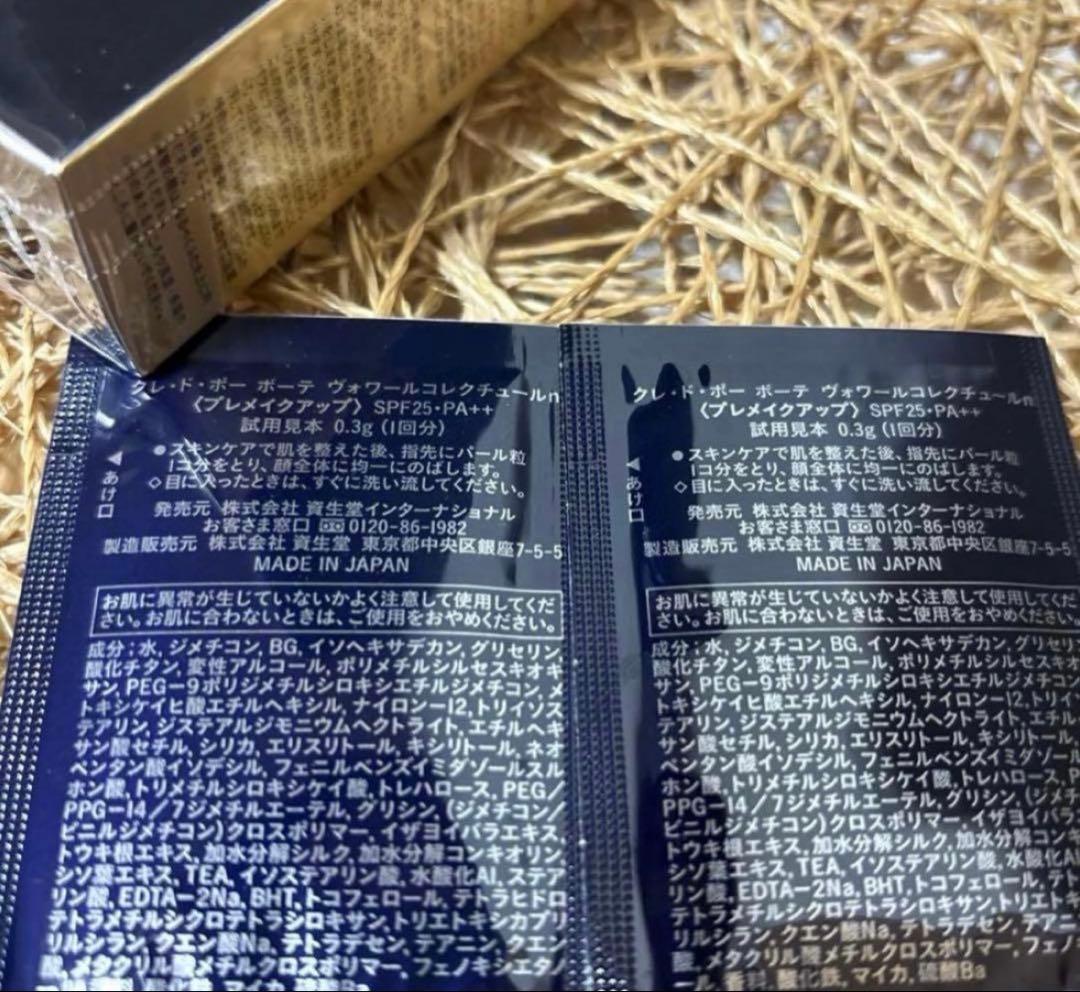 クレ・ド・ポー ボーテ ヴォワールコレクチュールn
〈プレメイクアップ〉 SPF25・PA++
試用見本 0.3g (1回分)
●スキンケアで肌を整えた後、指先にパール粒
1コ分をとり、顔全体に均一にのばします。
◇目に入ったときは、すぐに洗い流してください。
◀あけ口
発売元 株式会社 資生堂インターナショナル
お客さま窓口 0120-86-1982
製造販売元 株式会社 資生堂 東京都中央区銀座7-5-5
MADE IN JAPAN
お肌に異常が生じていないかよく注意して使用してくだ
さい。お肌に合わないときは、ご使用をおやめください。
成分：水, ジメチコン, BG, イソヘキサデカン, グリセリン,
酸化チタン, 変性アルコール, ポリメチルシルセスキオキ
サン, PEG-9ポリジメチルシロキシエチルジメチコン, メ
トキシケイヒ酸エチルヘキシル, ナイロン-12, トリイソス
テアリン, ジステアルジモニウムヘクトライト, エチルヘキ
サン酸セチル, シリカ, エリスリトール, キシリトール, ネオ
ペンタン酸イソデシル, フェニルベンズイミダゾールスル
ホン酸, トリメチルシロキシケイ酸, トレハロース, PEG/
PPG-14/7ジメチルエーテル, グリシン, (ジメチコン/
ビニルジメチコン)クロスポリマー, イザヨイバラエキス,
トウキ根エキス, 加水分解シルク, 加水分解コンキオリン,
シソ葉エキス, TEA, イソステアリン酸, 水酸化Al, ステア
リン酸, EDTA-2Na, BHT, トコフェロール, テトラヒドロ
テトラメチルシクロテトラシロキサン, トリエトキシカプリ
リルシラン, クエン酸Na, テトラデセン, テアニン, クエン
酸, メタクリル酸メチルクロスポリマー, フェノキシエタノ
ール, 香料, 酸化鉄, マイカ, 硫酸Ba
クレ・ド・ポー ボーテ ヴォワールコレクチュールn
〈プレメイクアップ〉 SPF25・PA++
試用見本 0.3g (1回分)
●スキンケアで肌を整えた後、指先にパール粒
1コ分をとり、顔全体に均一にのばします。
◇目に入ったときは、すぐに洗い流してください。
◀あけ口
発売元 株式会社 資生堂インターナショナル
お客さま窓口 0120-86-1982
製造販売元 株式会社 資生堂 東京都中央区銀座7-5-5
MADE IN JAPAN
お肌に異常が生じていないかよく注意して使用してくだ
さい。お肌に合わないときは、ご使用をおやめください。
成分：水, ジメチコン, BG, イソヘキサデカン, グリセリン
酸化チタン, 変性アルコール, ポリメチルシルセスキオキ
サン, PEG-9ポリジメチルシロキシエチルジメチコン
トキシケイヒ酸エチルヘキシル, ナイロン-12, トリイソ
テアリン, ジステアルジモニウムヘクトライト, エチル
サン酸セチル, シリカ, エリスリトール, キシリトール,
ペンタン酸イソデシル, フェニルベンズイミダゾール
ホン酸, トリメチルシロキシケイ酸, トレハロース, P
PPG-14/7ジメチルエーテル, グリシン, (ジメチ
ビニルジメチコン)クロスポリマー, イザヨイバラエ
トウキ根エキス, 加水分解シルク, 加水分解コンキ
シソ葉エキス, TEA, イソステアリン酸, 水酸化Al
リン酸, EDTA-2Na, BHT, トコフェロール, テト
テトラメチルシクロテトラシロキサン, トリエトキ
リルシラン, クエン酸Na, テトラデセン, テアニン,
酸, メタクリル酸メチルクロスポリマー, フェノ
ール, 香料, 酸化鉄, マイカ, 硫酸Ba